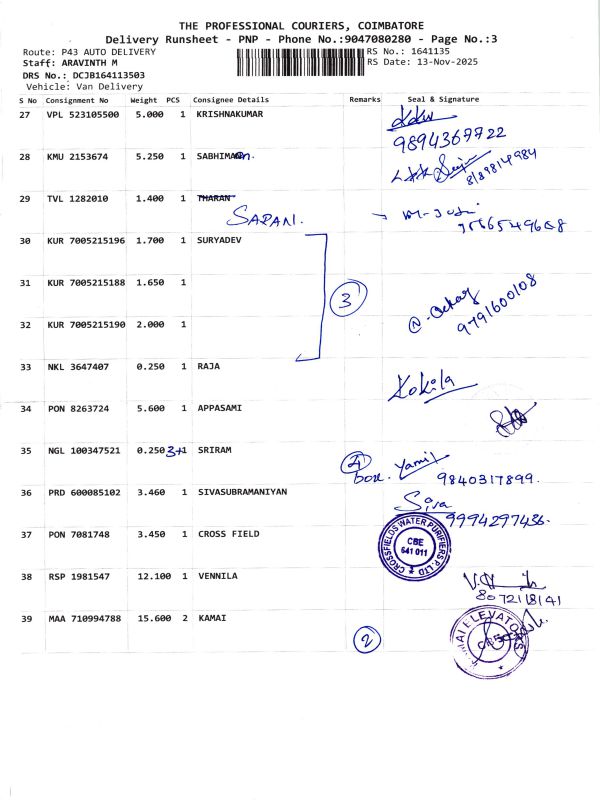 THE PROFESSIONAL COURIERS, COIMBATORE
Delivery Runsheet - PNP - Phone No.:9047080280 - Page No.:3
Route: P43 AUTO DELIVERY RS No.: 1641135
Staff: ARAVINTH M RS Date: 13-Nov-2025
DRS No.: DCJB164113503
Vehicle: Van Delivery
S No Consignment No Weight PCS Consignee Details Remarks Seal & Signature
27 VPL 523105500 5.000 1 KRISHNAKUMAR
9894367722
28 KMU 2153674 5.250 1 SABHIMAn.
29 TVL 1282010 1.400 1 THARAN
30 KUR 7005215196 1.700 1 SURYADEV
31 KUR 7005215188 1.650 1
3
9791600108
32 KUR 7005215190 2.000 1
33 NKL 3647407 0.250 1 RAJA
Kokila
34 PON 8263724 5.600 1 APPASAMI
35 NGL 100347521 0.250 3+1 SRIRAM
4 Yamit
box. 9840317899.
36 PRD 600085102 3.460 1 SIVASUBRAMANIYAN
Siva
9994297436.
37 PON 7081748 3.450 1 CROSS FIELD
CROSSFIELDS WATER PURIFIERS P. LTD
CBE
641 011
38 RSP 1981547 12.100 1 VENNILA
8072118141
39 MAA 710994788 15.600 2 KAMAI
2
ELEVATORS